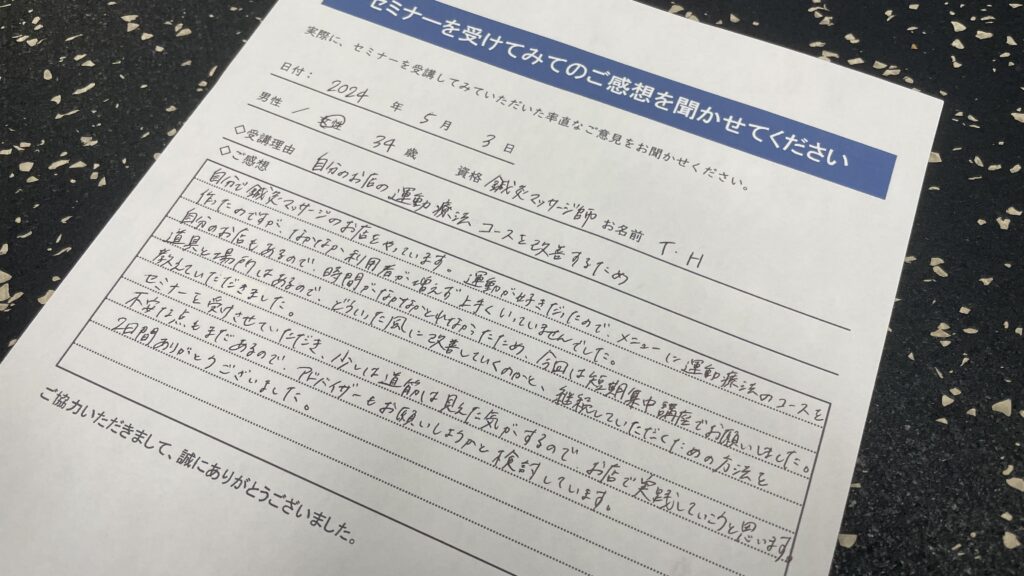 セミナーを受けてみてのご感想を聞かせてください
実際に、セミナーを受講してみていただいた率直なご意見をお聞かせください。
日付： 2024 年 5 月 3 日
男性 / 34 歳 資格 鍼灸マッサージ師 お名前 T.H
◇受講理由 自分のお店の運動療法コースを改善するため
◇ご感想
自分で鍼灸マッサージのお店をやっています。運動が好きだったので、メニューに運動療法のコースを
作ったのですが、なかなか利用者が増えず上手くいていませんでした。
自分のお店もあるので、時間がなかなかとれなかったため、今回は短期集中講座でお願いしました。
道具と場所はあるので、どういった風に改善していくのかと、継続していただくための方法を
教えていただきました。
セミナーを受けさせていただき、少しは道筋は見えた気がするのでお店で実践していこうと思います。
不安な点もまだあるので、アドバイザーもお願いしようかと検討しています。
2日間ありがとうございました。
ご協力いただきまして、誠にありがとうございました。